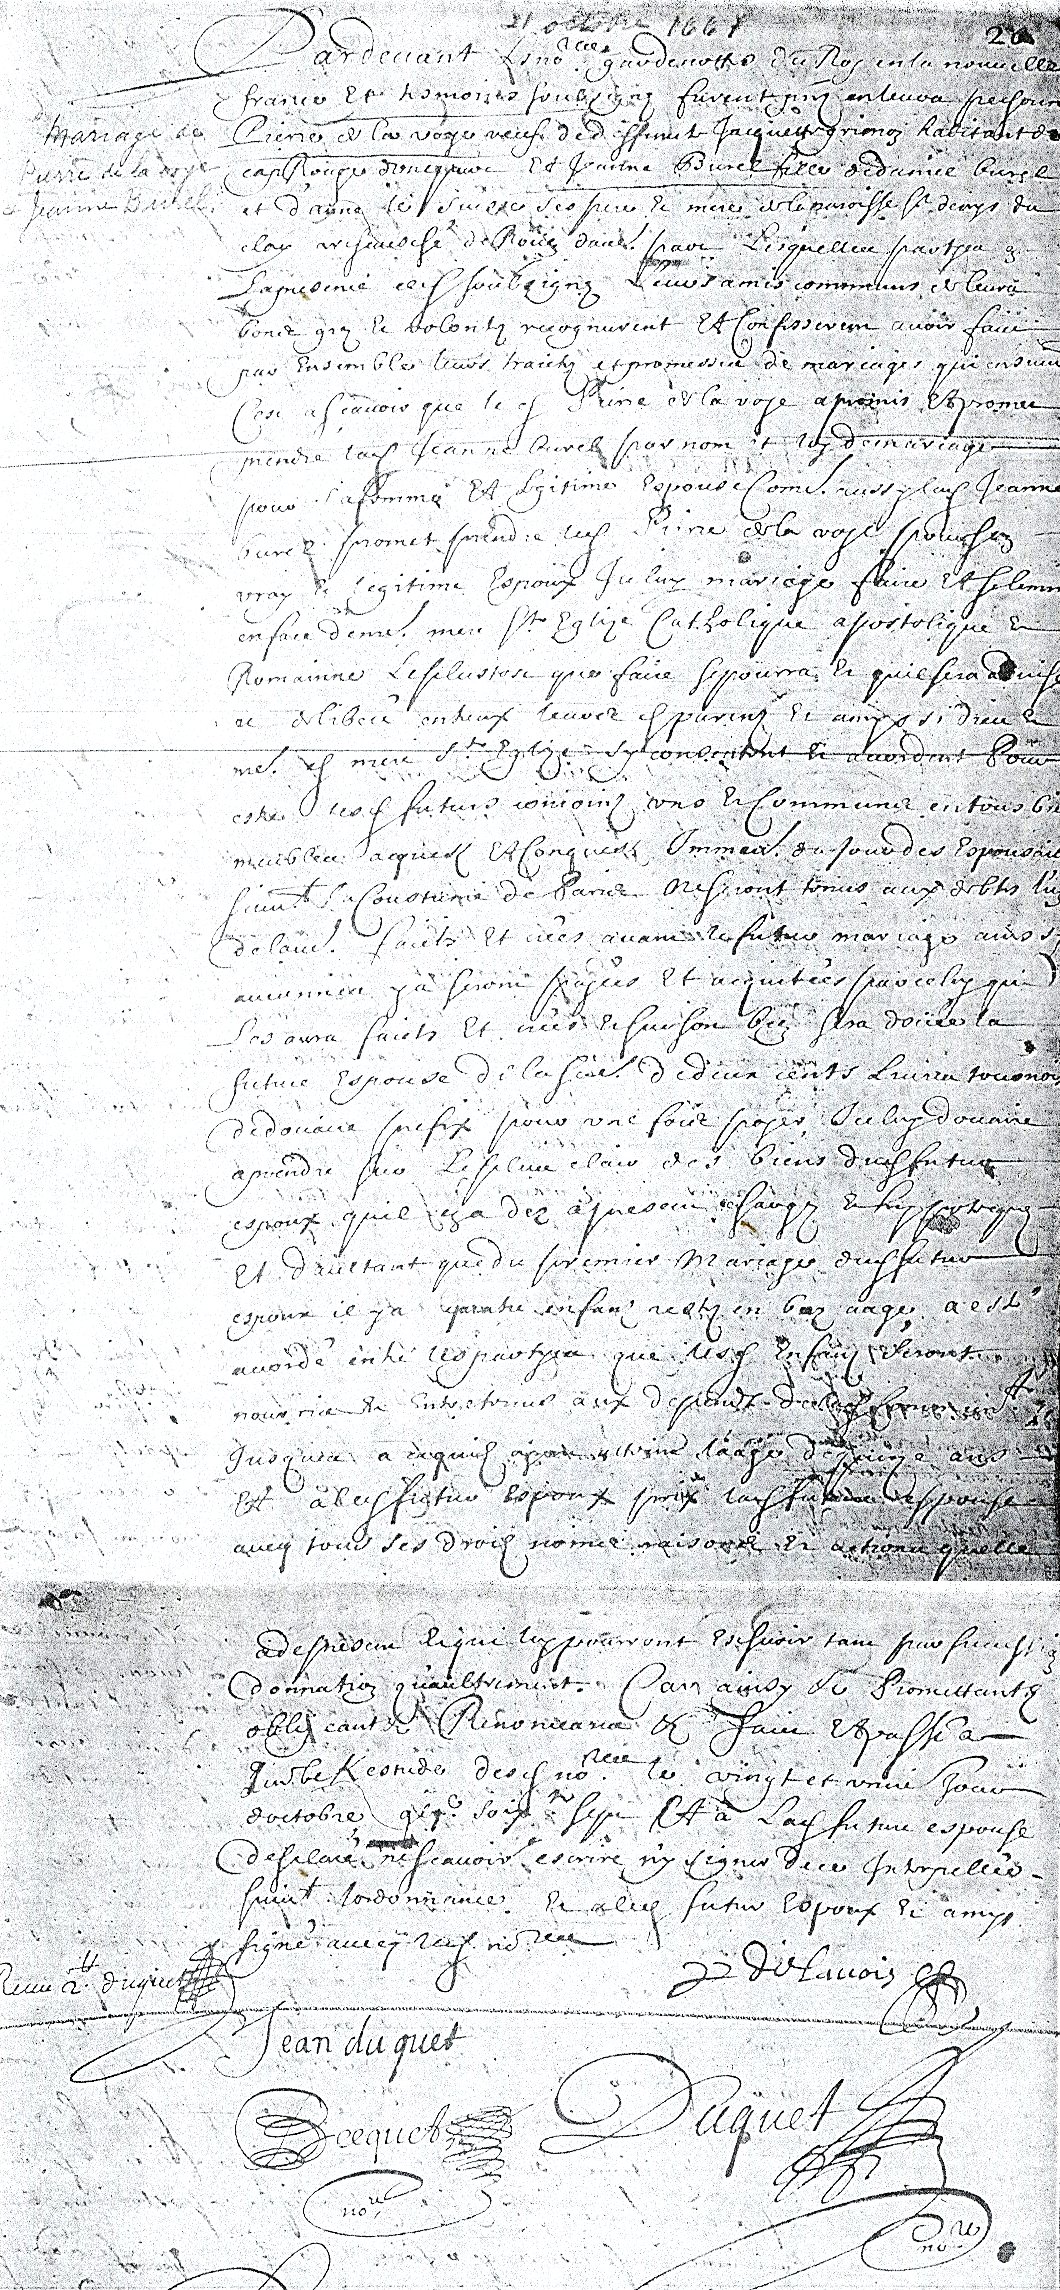 21 octobre 1667
20
Pardevant Les no.res gardenottes du Roy en la nouvelle
france Et tesmoins soubzsignez furent pnts en leurs personnes
Mariage de
Pierre de la voye
& Jeanne Burel
Pierre de la voye veuf de deffuncte Jacquette grinon habitant de
cap Rouge d'une part Et Jeanne Burel fille de daniel burel
et d'anne le suisse ses pere & mere de la paroisse St denys du
clos archevesché de Roüen d'aue. part Lesquelles partyes en
La presence des soubzsignez Leurs amis communs de leurs
bonne grez & volontez recognurent Et Confesserent avoir faict
par Ensembles leurs traitez et promesses de mariages qui ensuiv
Cest asçavoir que led Pierre de la voye a promis Et promet
prendre lad Jeanne burel par nom et loy de mariage
pour sa femme Et Legitime Espouse Come. aussy lad Jeanne
burel promet prendre led Pierre de la voye pour son
vray & Legitime Espoux Iceluy mariage faire Et solemni
en face de me. mere Ste Eglize Catholique apostolique &
Romainne Le plus tost que faire se pourra & quil sera advisé
et deliberé entreux leurs d parens & amys si dieu &
me. d mere Ste Eglize sy consentent & accordent Pour
estre lesd futurs conioints uns & Communs en tous biens
meubles acquests Et Conquests Immeu. du Jour des Espousail
suivt La Coustume de Paris Ne seront tenus aux debtes l'un
de laue. faicts Et crées avant le futur mariage ains sy
aucunnes y a seront payées Et acquittées par celuy qui
Les aura faicts Et crées & sur son bien sera doüée la
future Espouse de la so.e de deux cents Livres tournois
de doüaire prefix pour une fois payer Iceluy doüaire
a prendre sur Le plus clair des biens dud futur
espoux quil en a dez a present chargez & hyppotequez
Et D'aultant que du premier Mariage dud futur
espoux il y a quatre enfans restez en bas aage a esté
accordé entre les partyes que lesd Enfans seront
nourris & Entretenus aux depends de lad
Jusques a ce quils ayent atteint laage de quinze ans
Et a led futur Espoux pris lad future espouse
avecq tous ses droits noms raisons & actions quelle
a de present & qui luy pourront Eschoir tant par succession
donnation quaultrement. Car ainsy &c Promettants
obligeants Renonceans &c faict Et passé a
Quebek estude desd no.res le vingt et unie Jour
d'octobre gbjc. soixte sept Et a Lad future espouse
desclaré ne sçavoir escrire ny signer de ce Interpellée
suivt Lordonnance & a led futur Espoux & amys
signé avecq lesd no.res
De Lavois
Denis duquet
Jean duquet
Becquet
Duquet
nore
nore